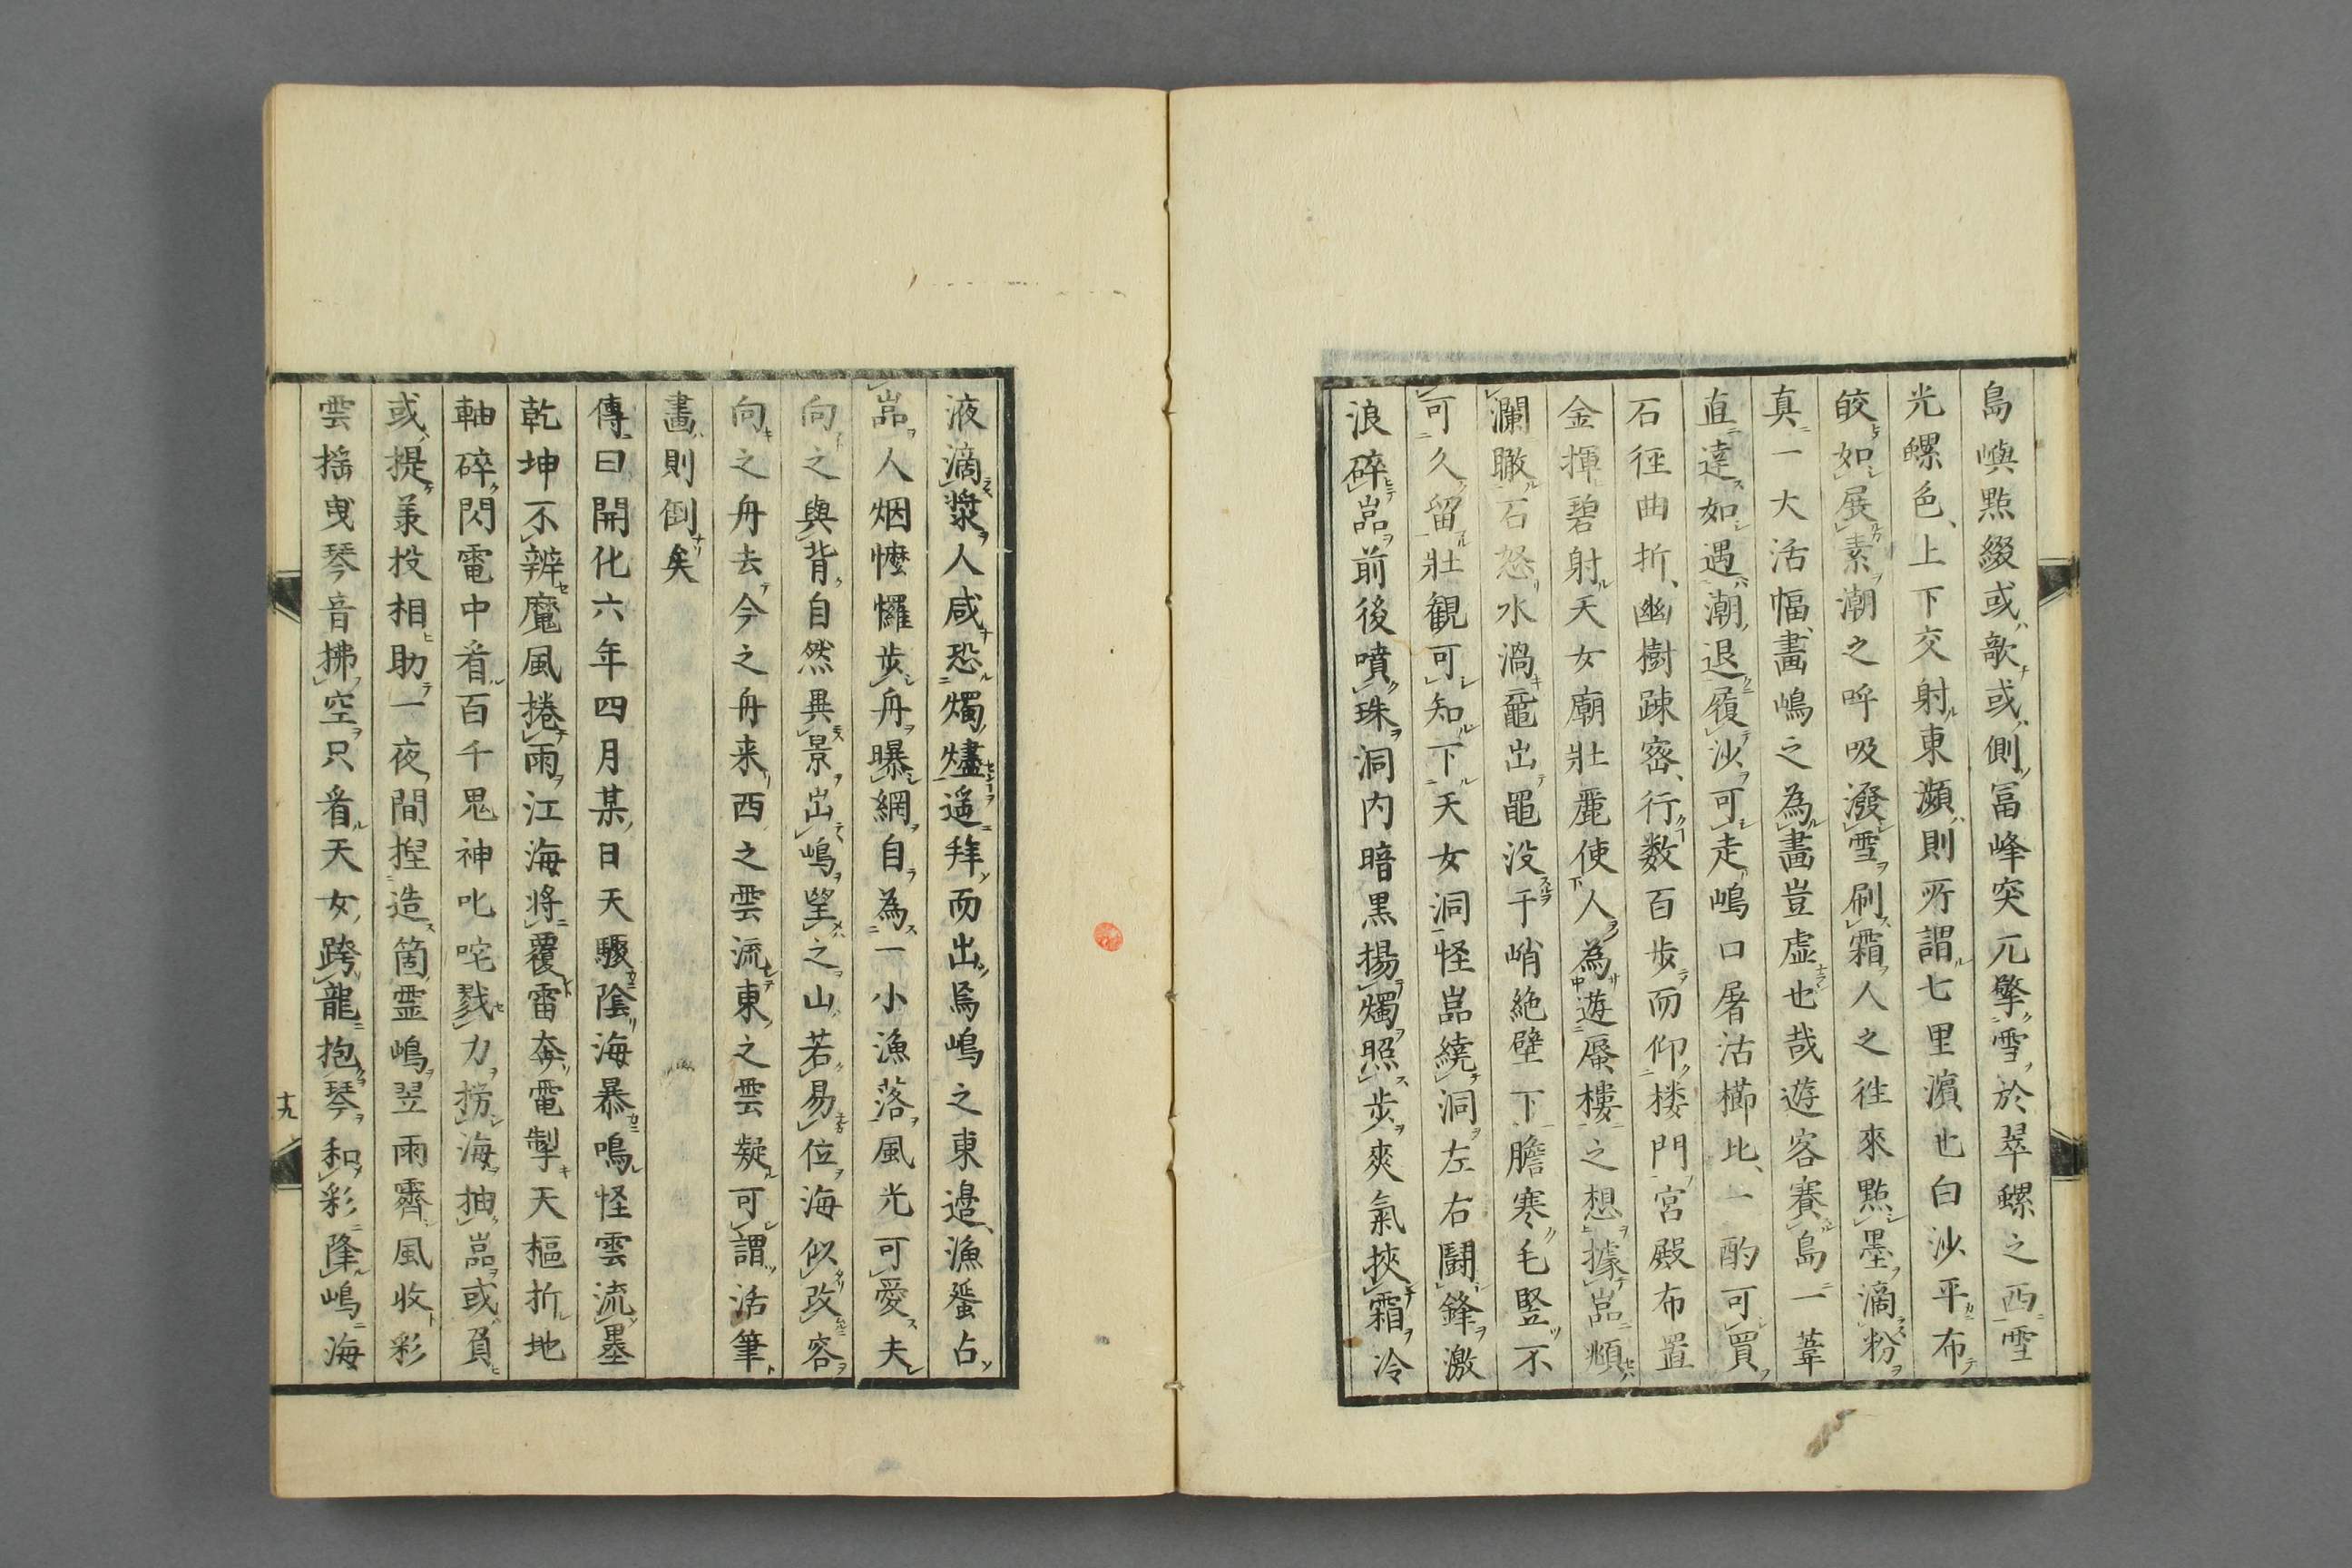 島嶼點綴或歌或側冨峰突兀擎雪於翠螺之西雪
光螺色上下交射東瀕則所謂七里濵也白沙平布
皎如展素潮之呼吸潑雪刷霜人之往來點墨滴粉
真一大活幅畫嶋之為畫豈虛也哉遊客賽島一葦
直達如遇潮退履沙可走嶋口屠沽櫛比一酌可買
石徑曲折幽樹踈宻行数百歩而仰楼門宮殿布置
金揮碧射天女廟壯麗使人為遊蜃樓之想據嵓瀕
瀾瞰石怒水渦黿出黽没千峭絶壁下下膽寒毛竪不
可久留壯観可知下天女洞怪嵓繞洞左右闘鋒激
浪碎嵓前後噴珠洞内暗黒揚燭照歩爽氣挾霜冷
液滴漿人咸恐燭燼遥拜而出焉嶋之東邉漁蜑占
嵓人烟懡㦬歩舟曝網自為一小漁落風光可愛夫
向之與背自然異景出嶋望之山若易位海似改容
向之舟去今之舟来西之雲流東之雲凝可謂活筆
畫則倒矣
傳曰開化六年四月某日天驟陰海暴鳴怪雲流墨
乾坤不辨魔風捲雨江海将覆雷奔電掣天樞折地
軸碎閃電中看百千鬼神叱咤戮力撈海抽嵓或負
或提羕投相助一夜間揑造箇霊嶋翌雨霽風收彩
雲揺曳琴音拂空只看天女跨龍抱琴和彩降嶋海
十九